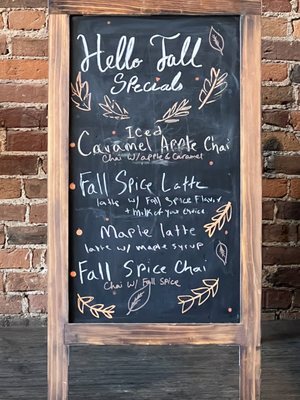 Hello Fall
Specials
Iced
Caramel Apple Chai
Chai w/ apple & Caramel
Fall Spice Latte
latte w/ Fall Spice Flavor
+ milk of you choice
Maple latte
latte w/ maple syrup
Fall Spice Chai
Chai w/ Fall Spice